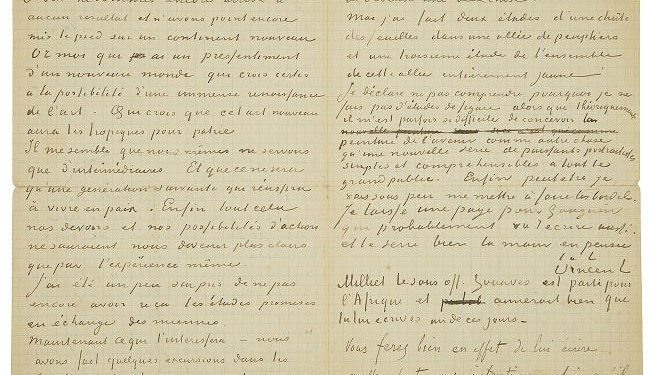 aucun resultat et n'avons point encore
mis le pied sur un continent nouveau
Or moi qui ai un pressentiment
d'un nouveau monde qui crois certes
à la possibilité d'une immense renaissance
de l'art. Qui crois que cet art nouveau
aura les tropiques pour patrie
Il me semble que nous mêmes ne servons
que d'intermédiaires Et que ce ne sera
qu'une génération suivante qui réussira
à vivre en paix. Enfin tout cela
nos devoirs et nos possibilités d'action
ne sauraient nous devenir plus clairs
que par l'expérience même.
J'ai été un peu surpris de ne pas
encore avoir reçu les études promises
en échange des miennes.
Maintenant ce qui t'interessera – nous
avons fait quelques excursions dans les
Moi j'ai fait deux études d'une chûte
des feuilles dans une allée de peupliers
et une troisième étude de l'ensemble
de cette allée entièrement jaune.
Je déclare ne pas comprendre pourquoi je ne
fais pas d'études de figure alors que théoriquement
il m'est parfois si difficile de concevoir la
peinture de l'avenir comme autre chose
qu'une nouvelle série de puissants portraitistes
simples et compréhensibles à tout le
grand public. Enfin peut être je
vais sous peu me mettre à faire les bordel.
Je laisse une page pour Gauguin
qui probablement va t'écrire aussi
et te serre bien la main en pensée
t. à t.
Vincent
Milliet le sous off. Zouaves est parti pour
l'Afrique et aimerait bien que
tu lui ecrives un de ces jours –
Vous ferez bien en effet de lui écrire